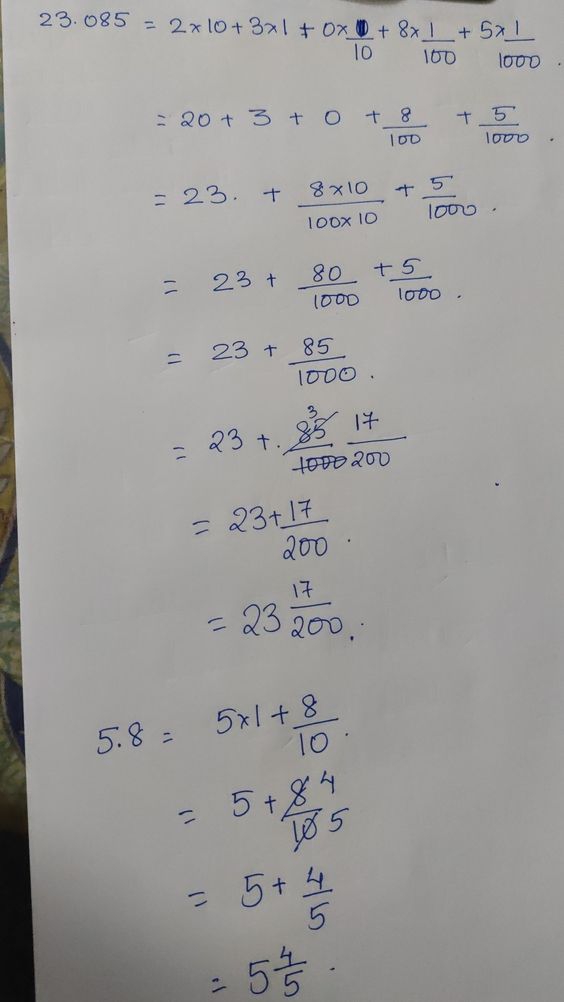 23.085 = 2×10 + 3×1 + 0×1/10 + 8×1/100 + 5×1/1000.
= 20 + 3 + 0 + 8/100 + 5/1000.
= 23. + 8×10/100×10 + 5/1000.
= 23 + 80/1000 + 5/1000.
= 23 + 85/1000.
= 23 + 85/1000 17/200
= 23 + 17/200.
= 23 17/200.
5.8 = 5×1 + 8/10.
= 5 + 8/10 4/5
= 5 + 4/5
= 5 4/5.